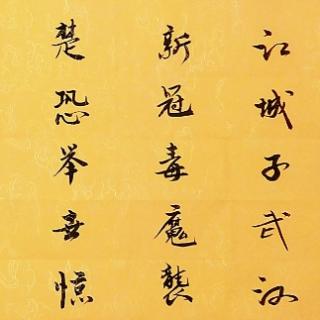 江城子武汉
新冠毒魔襲
楚恐举惊